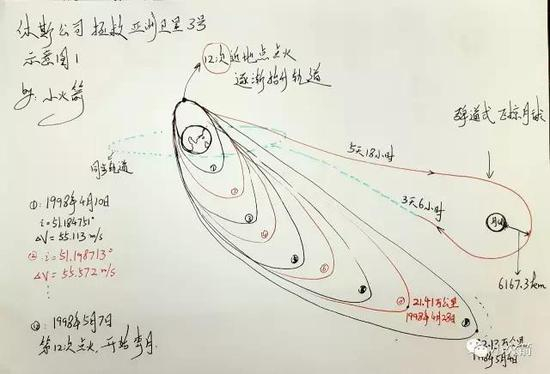 休斯公司拯救亚洲卫星3号
示意图1
by: 小火箭
12次近地点点火
逐渐抬升轨道
弹道式飞掠月球
同步轨道
5天18小时
3天6小时
月球
6167.3km
①: 1998年4月10日
i=51.184751°
ΔV=55.113 m/s
② i=51.198713°
ΔV=55.572 m/s
1998年5月7日
第12次点火,开始奔月.
21.41万公里
1998年4月28日
万公里